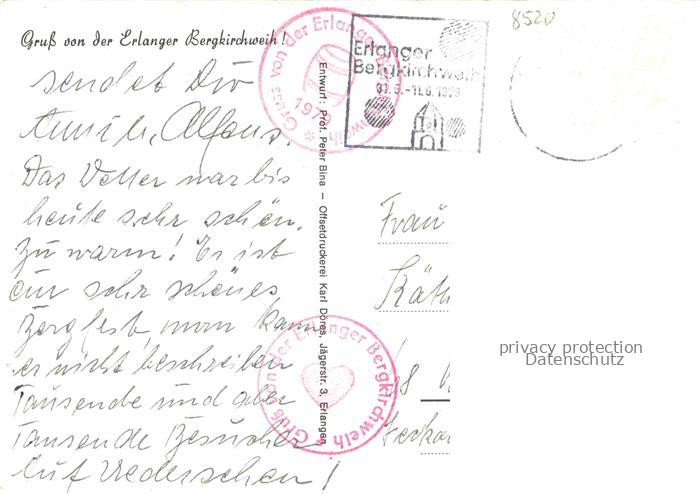 Gruß von der Erlanger Bergkirchweih!
sendet Dir
Anni u. Alfons.
Das Wetter war bis
heute sehr schön.
Zu warm! Es ist
ein sehr schönes
Bergfest, man kann
es nicht beschreiben
Tausende und aber
Tausende Besucher
Auf Wiedersehen!
Entwurf: Prof. Peter Bina – Offsetdruckerei Karl Döres, Jägerstr. 3, Erlangen
Gruss von der Erlanger
1979
Erlanger
Bergkirchweih
31.5.-11.6.1979
8520
Gruß von der Erlanger Bergkirchweih
Frau
Käth
privacy protection
Datenschutz